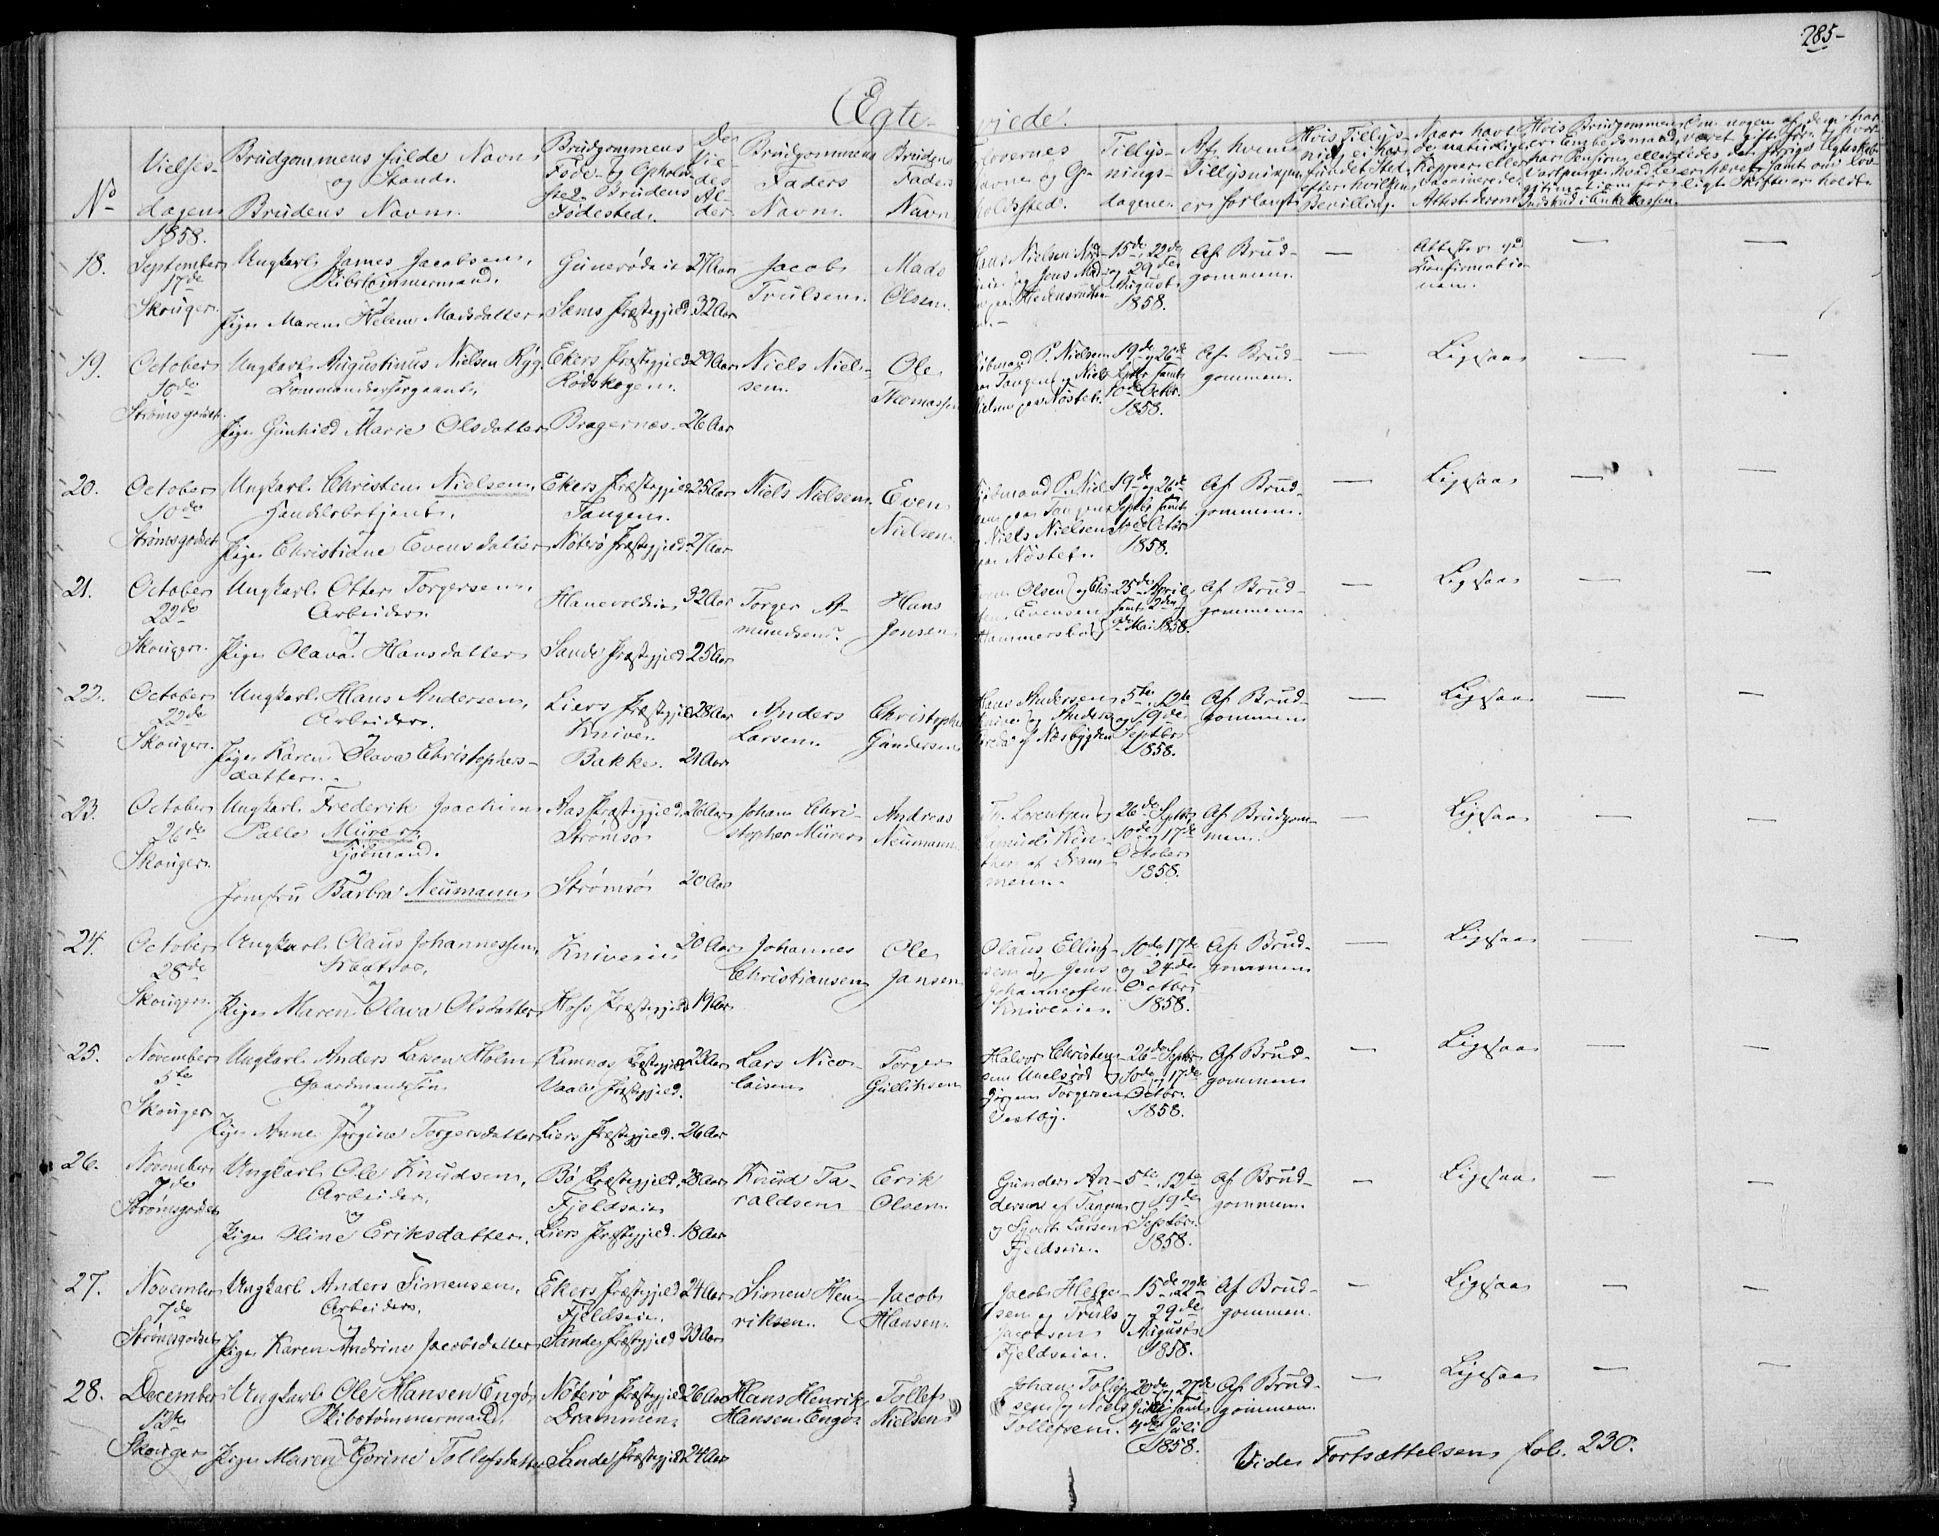 285-
Ægteviede.
No
Vielses-
dagen
Brudgommens fulde Navn
og Stand.
Brudens Navn.
Brudgommens
Føde- og Opholds-
sted. Brudens
Fødested.
De
Vie-
des
Al-
der.
Brudgommens
Faders
Navn.
Brudens
Faders
Navn
Forlovernes
Navne og Op-
holdssted.
Tillys-
nings-
dagene.
Af hvem
Tillysningen
er forlangt.
1858.
18.
September
17de
Skouger.
Ungkarl James Jacobsen,
Skibstømmermand,
og
Pige Maren Helene Madsdatter
Gunerødeie
Sems Præstegjeld
27 Aar
32 Aar
Jacob
Trulsen.
Mads
Olsen.
15de, 22de
og 29de
August
1858.
Af Brud-
gommen.
—
Attester og
Confirmatio-
nen.
—
—
19.
October
10de
Strømsgodset.
Ungkarl Augustinus Nielsen Ryg.
Commandeersergeant,
og
Pige Gunhild Marie Olsdatter
Ekers Præstegjeld
Rødskogen.
Bragernæs.
29 Aar
26 Aar
Niels Niel-
sen.
Ole
Thomassen
Kjøbmand P. Nielsen
paa Tangen og Niels
Nielsen paa Nøstet.
19de og 26de
Septbr samt
10de Octbr.
1858.
Af Brud-
gommen.
—
Ligesaa
—
—
20.
October
10de
Strømsgodset
Ungkarl Christen Nielsen,
Handelsbetjent,
og
Pige Christiane Evensdatter
Ekers Præstegjeld
Tangen.
Nøterø Præstegjeld
25 Aar
27 Aar
Niels Nielsen.
Even
Nielsen.
Kjøbmand P. Niel-
sen paa Tangen
og Niels Nielsen
paa Nøstet.
19de og 26de
Septbr samt
10de Octbr
1858.
Af Brud-
gommen.
—
Ligesaa
—
—
21.
October
22de
Skouger.
Ungkarl Otter Torgersen,
Arbeider.
og
Pige Olava Hansdatter
Hanevoldeie
Sande Præstegjeld
32 Aar
25 Aar
Torger A-
mundsen.
Hans
Jensen
25de April
samt 2den og
9de Mai 1858.
Af Brud-
gommen
—
Ligesaa
—
—
22.
October
22de
Skouger.
Ungkarl Hans Andersen,
Arbeider.
og
Pige Karen Olava Christophers-
datter.
Liers Præstegjeld
Kniven.
Bakke.
28 Aar
21 Aar
Anders
Larsen.
Christopher
Gundersen
5te, 12te
og 19de
Septbr
1858.
Af Brud-
gommen
—
Ligesaa
—
—
23.
October
26de
Skouger.
Ungkarl Frederik Joachim
Palle Mürer,
Kjøbmand.
og
Jomfru Barbra Neumann
Aas Præstegjeld
Strømsø
Strømsø
26 Aar
20 Aar
Johan Chri-
stopher Mürer
Andreas
Neumann
Fr. Lorentzen og
26de Septbr
10de og 17de
October
1858.
Af Brudgom-
men.
—
Ligesaa
—
—
24.
October
28de
Skouger.
Ungkarl Olaus Johannessen,
Matros,
og
Pige Maren Olava Olsdatter
Kniveeie
Hofs Præstegjeld
20 Aar
19 Aar
Johannes
Christiansen
Ole
Jansen
Olaus Elling-
sen og Jens
Johannessen
Kniveeie.
10de, 17de
og 24de
Octbr
1858.
Af Brud-
gommen
—
Ligesaa
—
—
25.
November
5te
Skouger
Ungkarl Anders Larsen Holm
Gaardmandssøn
og
Pige Anne Jørgine Torgersdatter
Ramnæs Præstegjeld
Vaale Præstegjeld.
Liers Præstegjeld.
23 Aar
26 Aar
Lars Nico-
laisen
Torger
Gulliksen
Halvor Christen-
sen Unelsrød og
Jørgen Torgersen
Vestby.
26de Septbr
10de og 17de
Octbr.
1858.
Af Brud-
gommen
—
Ligesaa
—
—
26.
November
7de
Strømsgodset
Ungkarl Ole Knudsen,
Arbeider,
og
Pige Oline Eriksdatter.
Bø Præstegjeld.
Fjeldseie
Liers Præstegjeld.
28 Aar
18 Aar
Knud Ta-
raldsen
Erik
Olsen.
Gunder An-
dersen af Tangen
og Syvert Larsen
Fjeldseie.
5te, 12te
og 19de
Septbr.
1858.
Af Brud-
gommen.
—
Ligesaa
—
—
27.
November
7de
Strømsgodset
Ungkarl Anders Simensen,
Arbeider,
og
Pige Karen Andrine Jacobsdatter
Ekers Præstegjeld
Fjeldseie.
Sande Præstegjeld
24 Aar
33 Aar
Simen Hen-
riksen.
Jacob
Hansen.
Jacob Helge-
sen og Truls
Jacobsen
Fjeldseie.
15de, 22de
og 29de
August
1858.
Af Brud-
gommen.
—
Ligesaa
—
—
28.
December
12te
Skouger
Ungkarl Ole Hansen Engø,
Skibstømmermand,
og
Pige Maren Gorine Tollefsdatter
Nøterø Præstegjeld
Drammen.
Sande Præstegjeld
26 Aar
24 Aar
Hans Henrik
Hansen Engø
Tollef
Nielsen
Johan Tollef-
sen og Niels
Tollefsen.
20de, 27de
Juni samt
4de Juli
1858.
Af Brud-
gommen.
—
Ligesaa
—
—
Vide Fortsættelsen fol. 230.